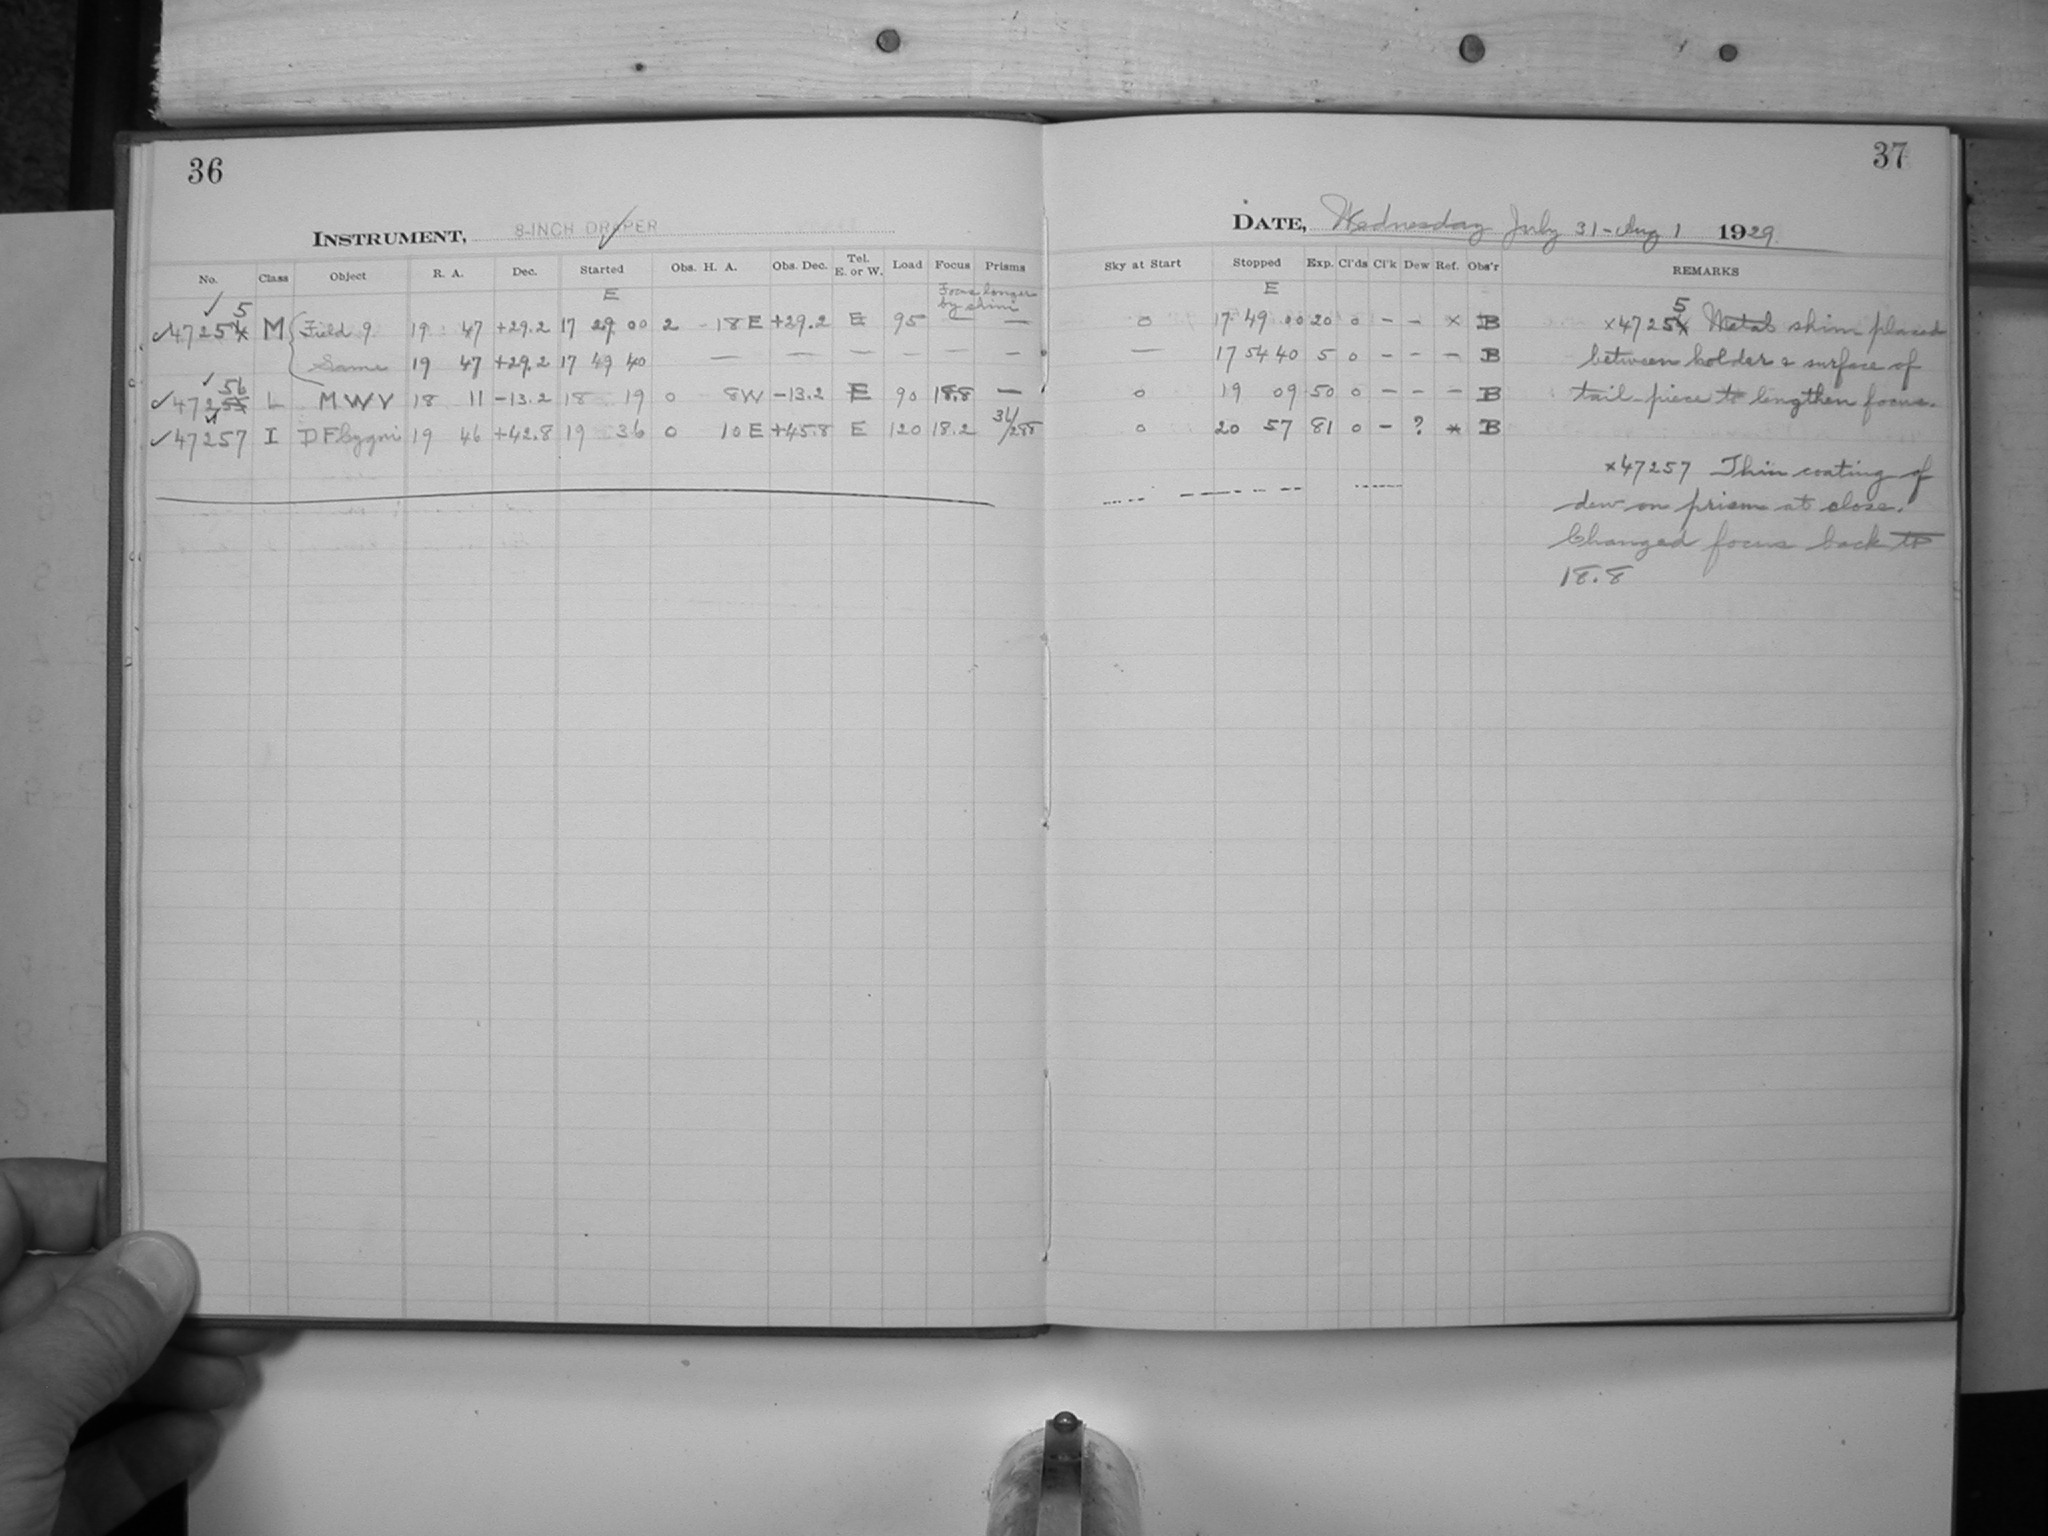 36
INSTRUMENT, 8-INCH DRAPER
No. Class Object R. A. Dec. Started Obs. H. A. Obs. Dec. Tel. E. or W. Load Focus Prisms
E Focus longer by shim
5
47254 M Field 9 19 47 +29.2 17 29 00 2 18 E +29.2 E 95 — —
Same 19 47 +29.2 17 49 40 — — — — — —
56
47255 L MWV 18 11 -13.2 18 19 0 8W -13.2 E 90 18.8 —
47257 I DF Cygni 19 46 +42.8 19 36 0 10 E +45.8 E 120 18.2
37
DATE, Wednesday July 31-Aug 1 1929
Sky at Start Stopped Exp. Cl'ds Cl'k Dew Ref. Obs'r REMARKS
E
0 17 49 00 20 0 - - x B
— 17 54 40 5 0 - - - B
0 19 09 50 0 - - - B
0 20 57 81 0 - ? * B
5
x47254 Metal shim placed
between holder & surface of
tail-piece to lengthen focus.
x47257 Thin coating of
dew on prism at close.
Changed focus back to
18.8